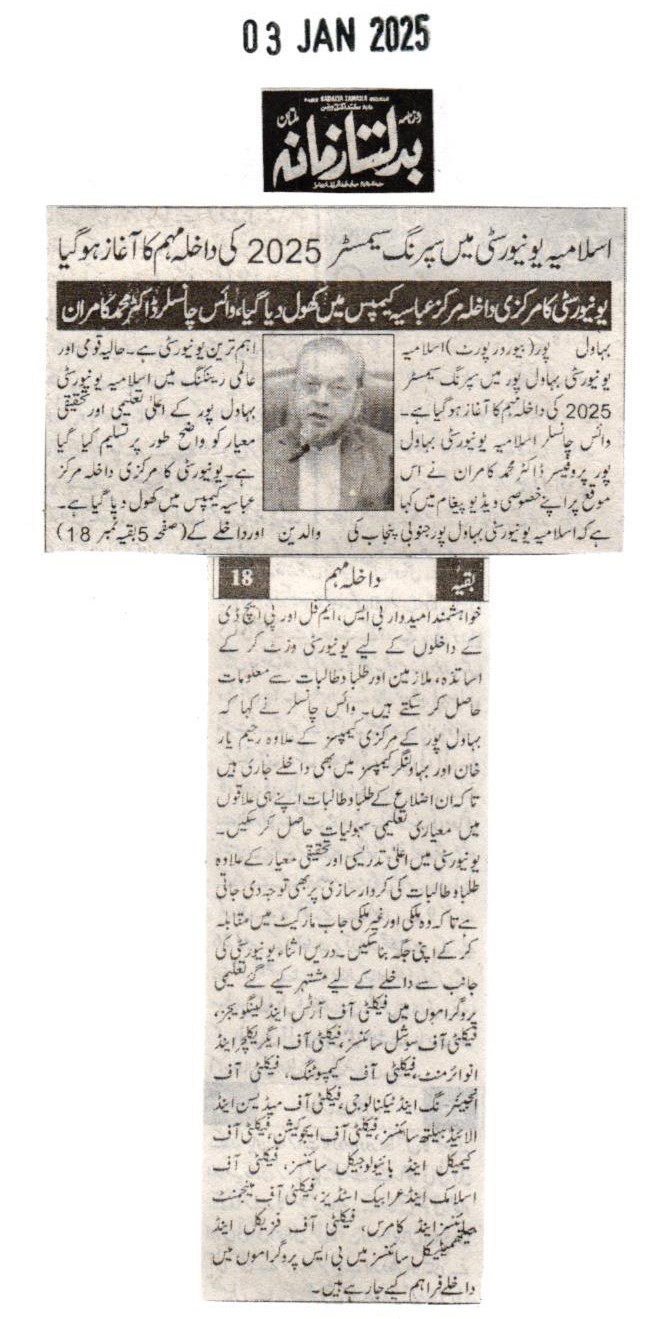 03 JAN 2025
DAILY BADALTA ZAMANA MULTAN
روزنامہ
بدلتا زمانہ
ملتان
اسلامیہ یونیورسٹی میں سپرنگ سیمسٹر 2025 کی داخلہ مہم کا آغاز ہو گیا
یونیورسٹی کا مرکزی داخلہ مرکز عباسیہ کیمپس میں کھول دیا گیا، وائس چانسلر ڈاکٹر محمد کامران
بہاول پور (بیورورپورٹ) اسلامیہ
یونیورسٹی بہاول پور میں سپرنگ سیمسٹر
2025 کی داخلہ مہم کا آغاز ہو گیا ہے۔
وائس چانسلر اسلامیہ یونیورسٹی بہاول
پور پروفیسر ڈاکٹر محمد کامران نے اس
موقع پر اپنے خصوصی ویڈیو پیغام میں کہا
ہے کہ اسلامیہ یونیورسٹی بہاول پور جنوبی پنجاب کی
اہم ترین یونیورسٹی ہے۔ حالیہ قومی اور
عالمی رینکنگ میں اسلامیہ یونیورسٹی
بہاول پور کے اعلیٰ تعلیمی اور تحقیقی
معیار کو واضح طور پر تسلیم کیا گیا
ہے۔ یونیورسٹی کا مرکزی داخلہ مرکز
عباسیہ کیمپس میں کھول دیا گیا ہے۔
والدین اور داخلے کے (صفحہ 5 بقیہ نمبر 18)
بقیہ داخلہ مہم 18
خواہشمند امیدوار بی ایس، ایم فل اور پی ایچ ڈی
کے داخلوں کے لیے یونیورسٹی وزٹ کر کے
اساتذہ، ملازمین اور طلبا و طالبات سے معلومات
حاصل کر سکتے ہیں۔ وائس چانسلر نے کہا کہ
بہاول پور کے مرکزی کیمپسز کے علاوہ رحیم یار
خان اور بہاولنگر کیمپسز میں بھی داخلے جاری ہیں
تاکہ ان اضلاع کے طلبا و طالبات اپنے ہی علاقوں
میں معیاری تعلیمی سہولیات حاصل کر سکیں۔
یونیورسٹی میں اعلیٰ تدریسی اور تحقیقی معیار کے علاوہ
طلبا و طالبات کی کردار سازی پر بھی توجہ دی جاتی
ہے تاکہ وہ ملکی اور غیر ملکی جاب مارکیٹ میں مقابلہ
کر کے اپنی جگہ بنا سکیں۔ دریں اثناء یونیورسٹی کی
جانب سے داخلے کے لیے مشتہر کیے گئے تعلیمی
پروگراموں میں فیکلٹی آف آرٹس اینڈ لینگویجز،
فیکلٹی آف سوشل سائنسز، فیکلٹی آف ایگریکلچر اینڈ
انوائرمنٹ، فیکلٹی آف کمپیوٹنگ، فیکلٹی آف
انجینئرنگ اینڈ ٹیکنالوجی، فیکلٹی آف میڈیسن اینڈ
الائیڈ ہیلتھ سائنسز، فیکلٹی آف ایجوکیشن، فیکلٹی آف
کیمیکل اینڈ بائیولوجیکل سائنسز، فیکلٹی آف
اسلامک اینڈ عرابیک اسٹڈیز، فیکلٹی آف مینجمنٹ
سائنسز اینڈ کامرس، فیکلٹی آف فزیکل اینڈ
میتھمیٹیکل سائنسز میں بی ایس پروگراموں میں
داخلے فراہم کیے جا رہے ہیں۔